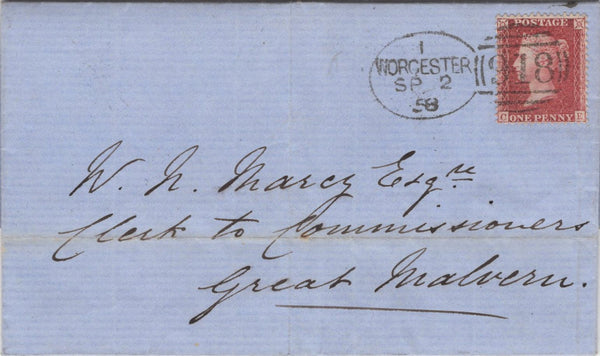 POSTAGE
1
WORCESTER
SP 2
58
918
ONE PENNY
W. N. Marcy Esqre
Clerk to Commissioners
Great Malvern.